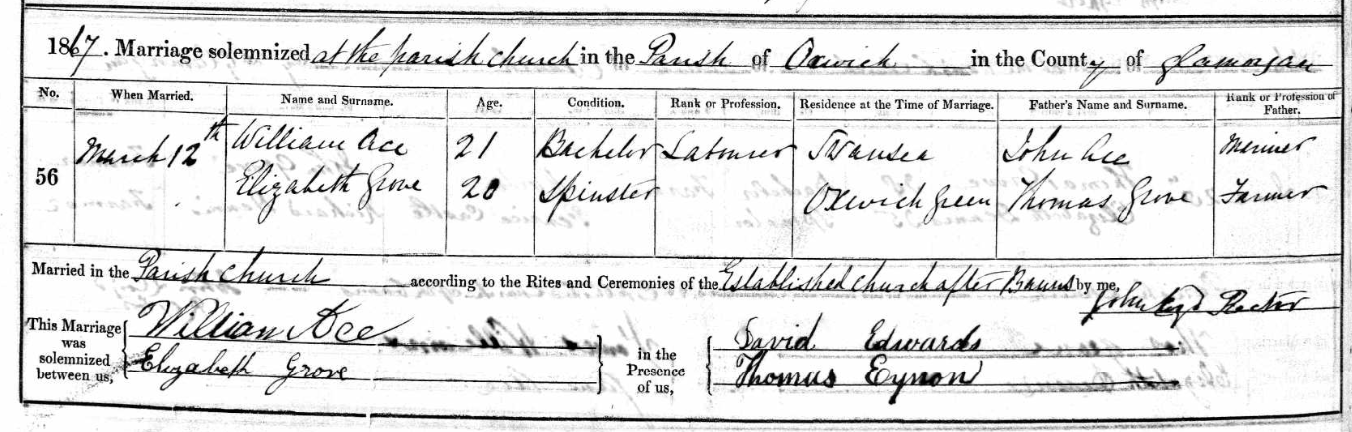 1867. Marriage solemnized at the parish church in the Parish of Oxwich in the County of Glamorgan
No. When Married. Name and Surname. Age. Condition. Rank or Profession. Residence at the Time of Marriage. Father's Name and Surname. Rank or Profession of Father.
56 March 12th William Ace 21 Bachelor Labourer Swansea John Ace Mariner
Elizabeth Grove 20 Spinster Oxwich Green Thomas Grove Farmer
Married in the Parish Church according to the Rites and Ceremonies of the Established Church after Banns by me,
John Rector
This Marriage was solemnized between us, William Ace in the Presence of us, David Edwards
Elizabeth Grove Thomas Eynon